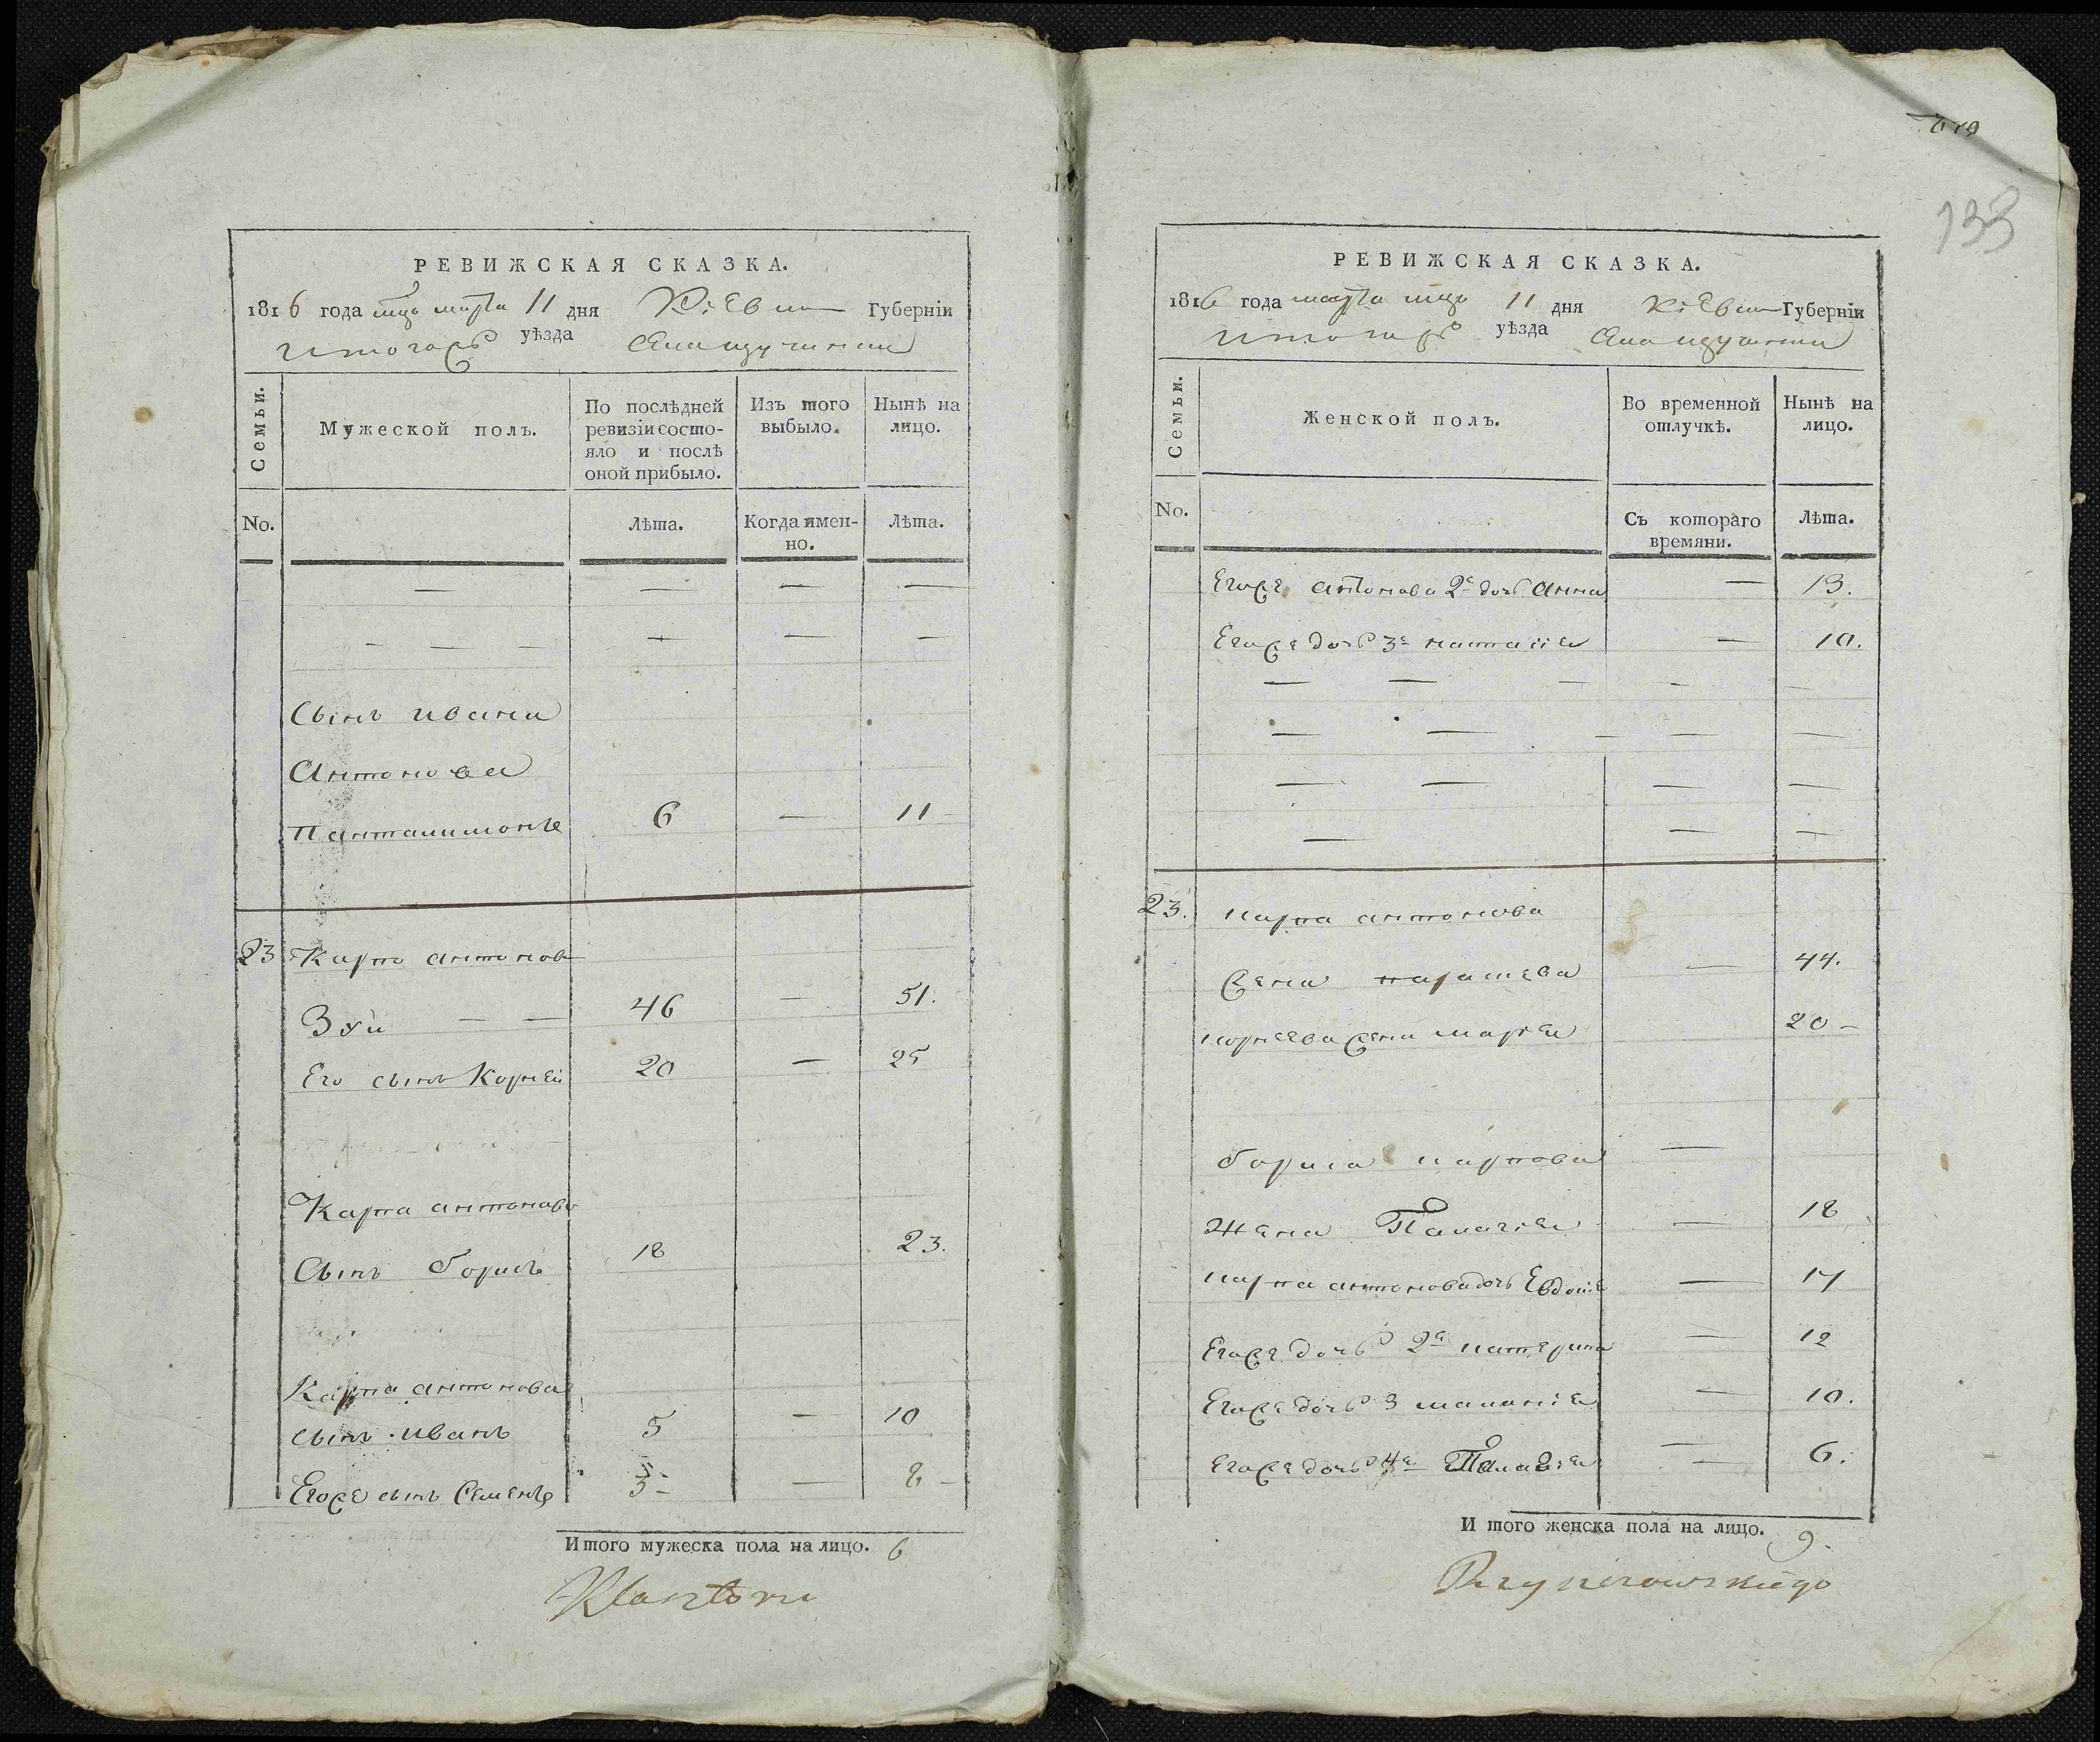 РЕВИЖСКАЯ СКАЗКА.
1816 года мца марта 11 дня Губерніи
уѣзда
Семьи.
Мужеской полъ.
По послѣдней ревизіи состояло и послѣ оной прибыло.
Изъ того выбыло.
Нынѣ на лицо.
No.
Лѣта.
Когда именно.
Лѣта.
— — — —
— — — — — —
Сынъ ивана
Антонова
Панталимонъ 6 — 11 —
23 Карпо антоновъ
Зуй — — 46 — 51.
Его сынъ Корнѣй 20 — 25
Карпа антонова
Сынъ борисъ 18 23.
Карпа антонова
сынъ иванъ 5 — 10
Егоже сынъ Семенъ 3 — — 8 —
Итого мужеска пола на лицо. 6
133
РЕВИЖСКАЯ СКАЗКА.
1816 года марта мца 11 дня Губерніи
уѣзда
Семьи.
Женской полъ.
Во временной отлучкѣ.
Нынѣ на лицо.
No.
Съ котораго времяни.
Лѣта.
Егоже антонова 2а дочь Анна — 13.
Егоже дочь 3а наталія — 10.
— — — — —
— — — — — —
— — — —
— — —
23. карпа антонова
жена — 44.
корнеева жена марія 20 —
бориса карпова —
жена Палагія — 18
карпа антонова дочь Евдокія — 17
Егоже дочь 2а катерина — 12
Егоже дочь 3 маланія — 10.
Егоже дочь 4а Палагія — 6.
Итого женска пола на лицо. 9.